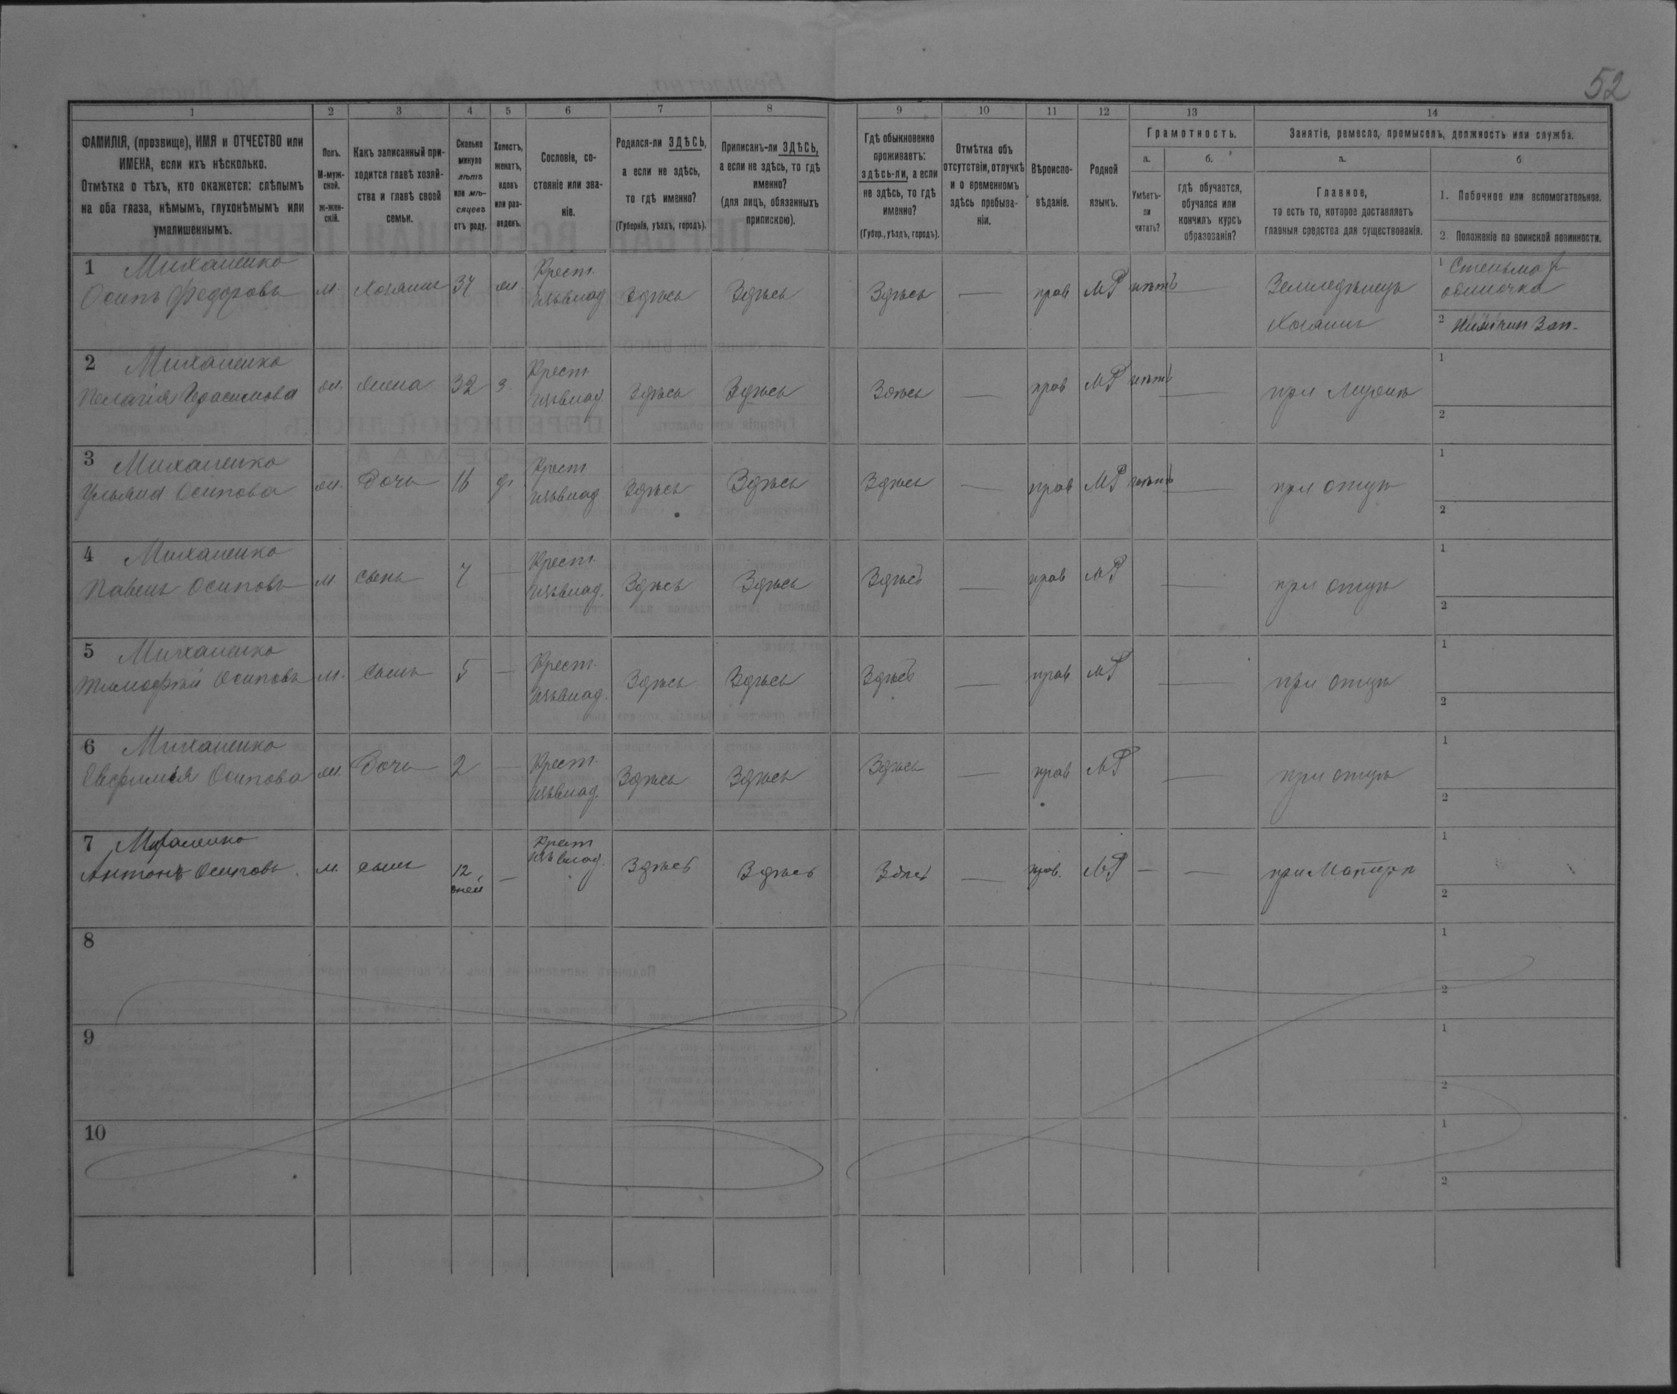 52
1 2 3 4 5 6 7 8 9 10 11 12 13 14
ФАМИЛІЯ, (прозвище), ИМЯ и ОТЧЕСТВО или
ИМЕНА, если ихъ нѣсколько.
Отмѣтка о тѣхъ, кто окажется: слѣпымъ
на оба глаза, нѣмымъ, глухонѣмымъ или
умалишеннымъ.
Полъ.
М-муж-
ской.
ж-жен-
скій.
Какъ записанный при-
ходится главѣ хозяй-
ства и главѣ своей
семьи.
Сколько
минуло
лѣтъ
или мѣ-
сяцевъ
отъ роду.
Холостъ,
женатъ,
вдовъ
или раз-
веденъ.
Сословіе, со-
стояніе или зва-
ніе.
Родился-ли ЗДѢСЬ,
а если не здѣсь,
то гдѣ именно?
(Губернія, уѣздъ, городъ).
Приписанъ-ли ЗДѢСЬ,
а если не здѣсь, то гдѣ
именно?
(для лицъ, обязанныхъ
припискою).
Гдѣ обыкновенно
проживаетъ:
здѣсь-ли, а если
не здѣсь, то гдѣ
именно?
(Губер., уѣздъ, городъ).
Отмѣтка объ
отсутствіи, отлучкѣ
и о временномъ
здѣсь пребыва-
ніи.
Вѣроиспо-
вѣданіе.
Родной
языкъ.
Грамотность.
а.
Умѣетъ-
ли
читать?
б.
гдѣ обучается,
обучался или
кончилъ курсъ
образованія?
Занятіе, ремесло, промыселъ, должность или служба.
а.
Главное,
то есть то, которое доставляетъ
главныя средства для существованія.
б
1. Побочное или вспомогательное.
2. Положеніе по воинской повинности.
1 Миханенко Крест. 1
Осипъ Федоровъ м. хозяинъ 37 ж. изъ влад. Здѣсь Здѣсь Здѣсь — прав МР нѣтъ — Земледѣлецъ одиночка
Хозяинъ 2
2 Миханенко Крест. 1
Пелагія Герасимова ж. жена 32 з. изъ влад. Здѣсь Здѣсь Здѣсь прав МР нѣтъ — при мужѣ
2
3 Миханенко Крест. 1
Ульяна Осипова ж. Дочь 16 изъ влад. Здѣсь Здѣсь Здѣсь — прав МР нѣтъ — при отцѣ
2
4 Миханенко Крест. 1
Павелъ Осиповъ м. сынъ 7 — изъ влад. Здѣсь Здѣсь Здѣсь — прав МР — при отцѣ
2
5 Миханенко Крест. 1
Тимофѣй Осиповъ м. сынъ 5 — изъ влад. Здѣсь Здѣсь Здѣсь — прав МР — при отцѣ
2
6 Миханенко Крест. 1
Евфимія Осипова ж. Дочь 2 — изъ влад. Здѣсь Здѣсь Здѣсь — прав МР — при отцѣ
2
7 Миханенко Крест 1
Антонъ Осиповъ. м. сынъ 12 дней — изъ влад. Здѣсь Здѣсь Здѣсь — прав. МР — — при Матери
2
8 1
2
9 1
2
10 1
2